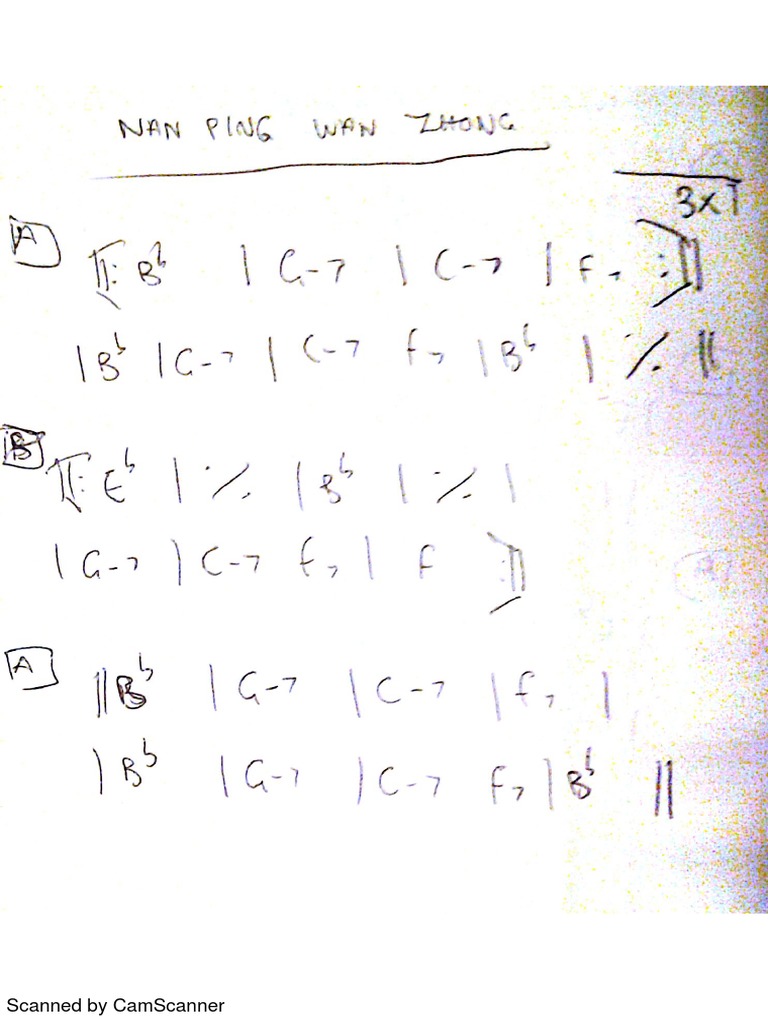 NAN PING WAN ZHONG
3x
A
‖: B♭ | G-7 | C-7 | F7 :‖
| B♭ | G-7 | C-7 F7 | B♭ | % ‖
B
‖: E♭ | % | B♭ | % |
| G-7 | C-7 F7 | F :‖
A
‖ B♭ | G-7 | C-7 | F7 |
| B♭ | G-7 | C-7 F7 | B♭ ‖
Scanned by CamScanner